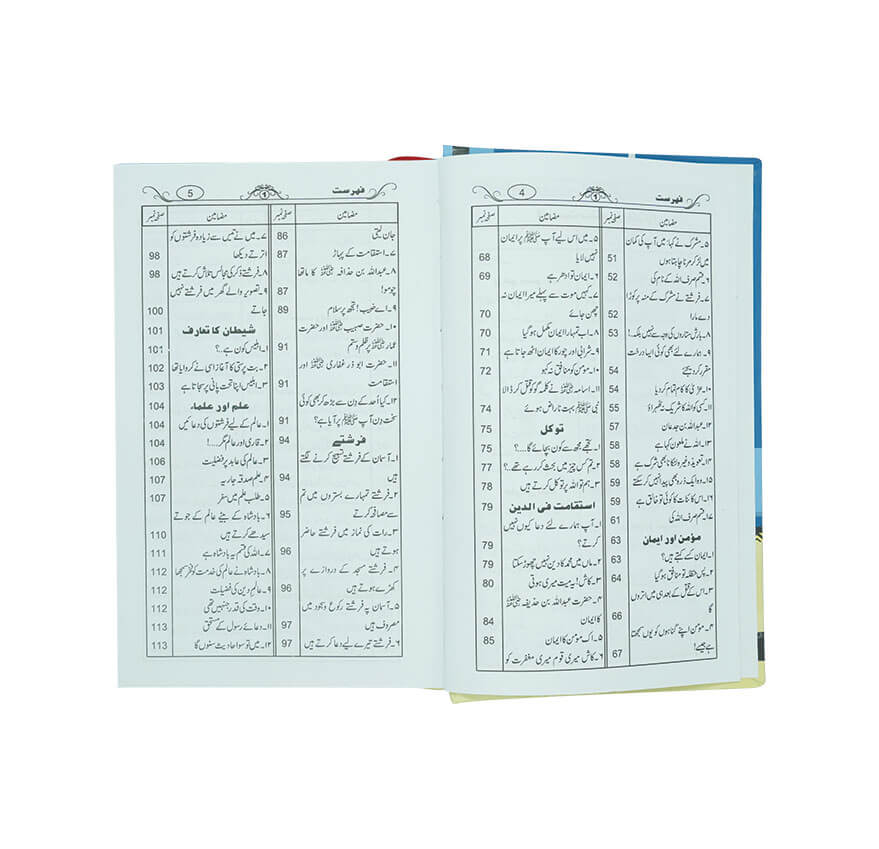 فہرست
4
مضامین صفحہ نمبر
۵۔ مشرک نے کہا: میں آپ کی کمان
میں لڑ کر مرنا چاہتا ہوں 51
۶۔ قسم صرف اللہ کے نام کی 52
۷۔ فرشتے نے مشرک کے منہ پر کوڑا
دے مارا 52
۸۔ بارش ستاروں کی وجہ سے نہیں بلکہ! 53
۹۔ ہمارے لئے بھی کوئی ایسا درخت
مقرر کر دیجئے 54
۱۰۔ عزیٰ کا کام تمام کر دیا 54
۱۱۔ کسی کو اللہ کا شریک نہ ٹھہراؤ 55
۱۲۔ عبداللہ بن جدعان 57
۱۳۔ اللہ نے ملعون کہا ہے 58
۱۴۔ تعویذ وغیرہ لٹکانا بھی شرک ہے 58
۱۵۔ وہ ایک ذرہ بھی پیدا نہیں کر سکتے 59
۱۶۔ اس کائنات کا کوئی تو خالق ہے 59
۱۷۔ قسم صرف اللہ کی 61
مؤمن اور ایمان 63
۱۔ ایمان کسے کہتے ہیں؟ 63
۲۔ پس حنظلہ تو منافق ہو گیا 64
۳۔ اس کے قتل کے بعد ہی میں اتروں
گا 66
۴۔ مؤمن اپنے گناہوں کو یوں سمجھتا
ہے جیسے! 67
مضامین صفحہ نمبر
۵۔ میں اس لیے آپ ﷺ پر ایمان
نہیں لایا 68
۶۔ ایمان تو ادھر ہے 69
۷۔ کہیں موت سے پہلے میرا ایمان نہ
چھن جائے 70
۸۔ اب تمہارا ایمان مکمل ہو گیا 70
۹۔ شرابی اور چور کا ایمان اٹھ جاتا ہے 71
۱۰۔ مؤمن کو منافق نہ کہو 72
۱۱۔ اسامہ نے کلمہ گو کو قتل کر ڈالا
نبی ﷺ بہت ناراض ہوئے 74
توکل 75
۱۔ تجھے مجھ سے کون بچائے گا....؟ 75
۲۔ تم کس چیز میں بحث کر رہے تھے..؟ 77
۳۔ ہم تو اللہ پر توکل کرتے ہیں 78
استقامت فی الدین 79
۱۔ آپ ہمارے لئے دعا کیوں نہیں
کرتے؟ 79
۲۔ ماں میں محمد کا دین نہیں چھوڑ سکتا 79
۳۔ کاش! یہ میت میری ہوتی 80
۴۔ حضرت عبداللہ بن حذیفہ
کا ایمان 84
۵۔ اک مؤمن کا ایمان 85
۶۔ کاش میری قوم میری مغفرت کو
فہرست
5
مضامین صفحہ نمبر
جان لیتی 86
۷۔ استقامت کے پہاڑ 87
۸۔ عبداللہ بن حذافہ کا ماتھا
چومو! 87
۹۔ اے خبیب! تجھ پر سلام 89
۱۰۔ حضرت صہیب اور حضرت
عمار پر ظلم و ستم 91
۱۱۔ حضرت ابو ذر غفاری اور
استقامت 91
۱۲۔ کیا اُحد کے دن سے بڑھ کر بھی کوئی
سخت دن آپ ﷺ پر آیا ہے؟ 91
فرشتے 94
۱۔ آسمان کے فرشتے تسبیح کرنے لگتے
ہیں 94
۲۔ فرشتے تمہارے بستروں میں تم
سے مصافحہ کرتے 95
۳۔ رات کی نماز میں فرشتے حاضر
ہوتے ہیں 96
۴۔ فرشتے مسجد کے دروازے پر
کھڑے ہوتے ہیں 96
۵۔ آسمان پہ فرشتے رکوع و سجود میں
مصروف ہیں 97
۶۔ فرشتے تیرے لیے دعا کرتے ہیں 97
مضامین صفحہ نمبر
۷۔ میں نے تیس سے زیادہ فرشتوں کو
اترتے دیکھا 98
۸۔ فرشتے ذکر کی مجالس تلاش کرتے ہیں 98
۹۔ تصویر والے گھر میں فرشتے نہیں
جاتے 100
شیطان کا تعارف 101
۱۔ ابلیس کون ہے..؟ 101
۲۔ بت پرستی کا آغاز اسی نے کروایا تھا 102
۳۔ ابلیس اپنا تخت پانی پر سجاتا ہے 103
علم اور علماء 104
۱۔ عالم کے لیے فرشتوں کی دعائیں 104
۲۔ قاری اور عالم مگر....! 104
۳۔ عالم کی عابد پر فضیلت 106
۴۔ علم صدقہ جاریہ 107
۵۔ طلب علم میں سفر 107
۶۔ بادشاہ کے بیٹے عالم کے جوتے
سیدھے کرتے ہیں 110
۷۔ اللہ کی قسم یہ بادشاہ ہے 111
۸۔ بادشاہ نے عالم کی خدمت کو فخر سمجھا 112
۹۔ عالم دین کی فضیلت 112
۱۰۔ وقت کی قدر جنہیں تھی 112
۱۱۔ دعائے رسول کے مستحق 113
۱۲۔ میں تو سو احادیث سنوں گا 113